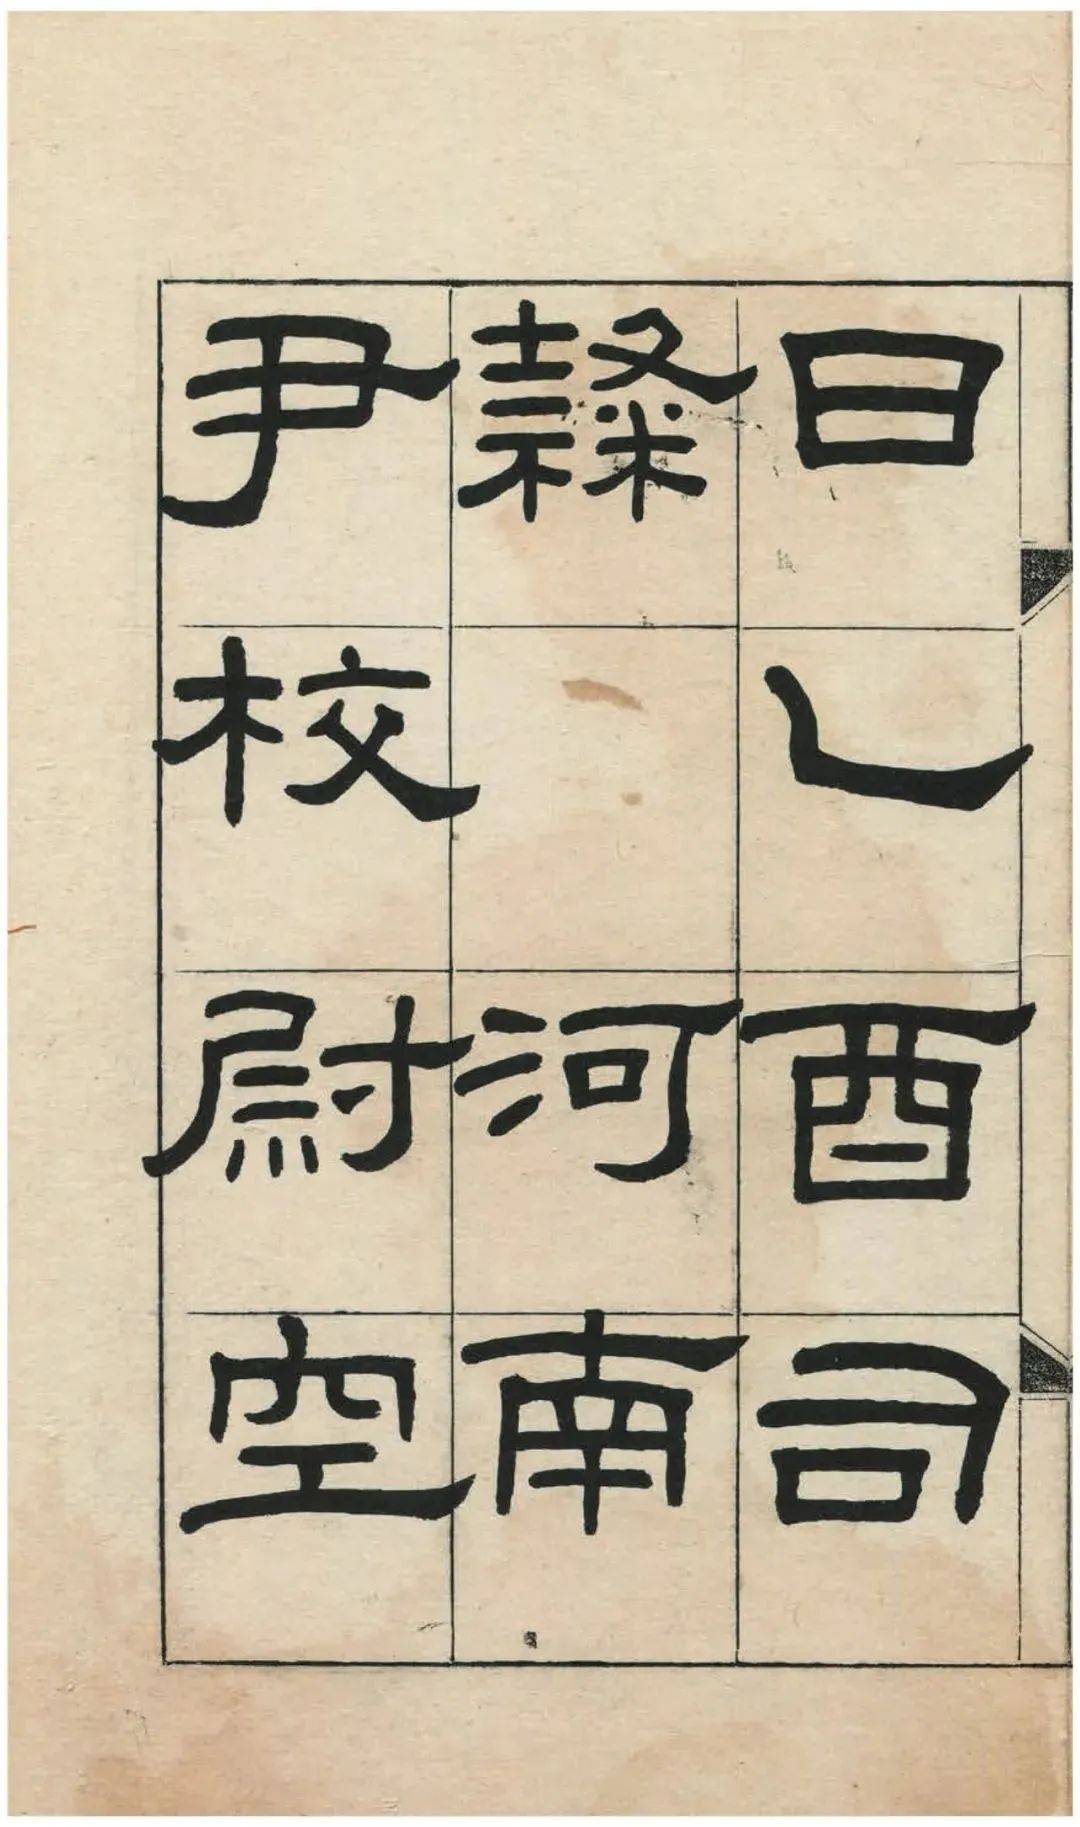 日乚酉司
隸河南
尹校尉空